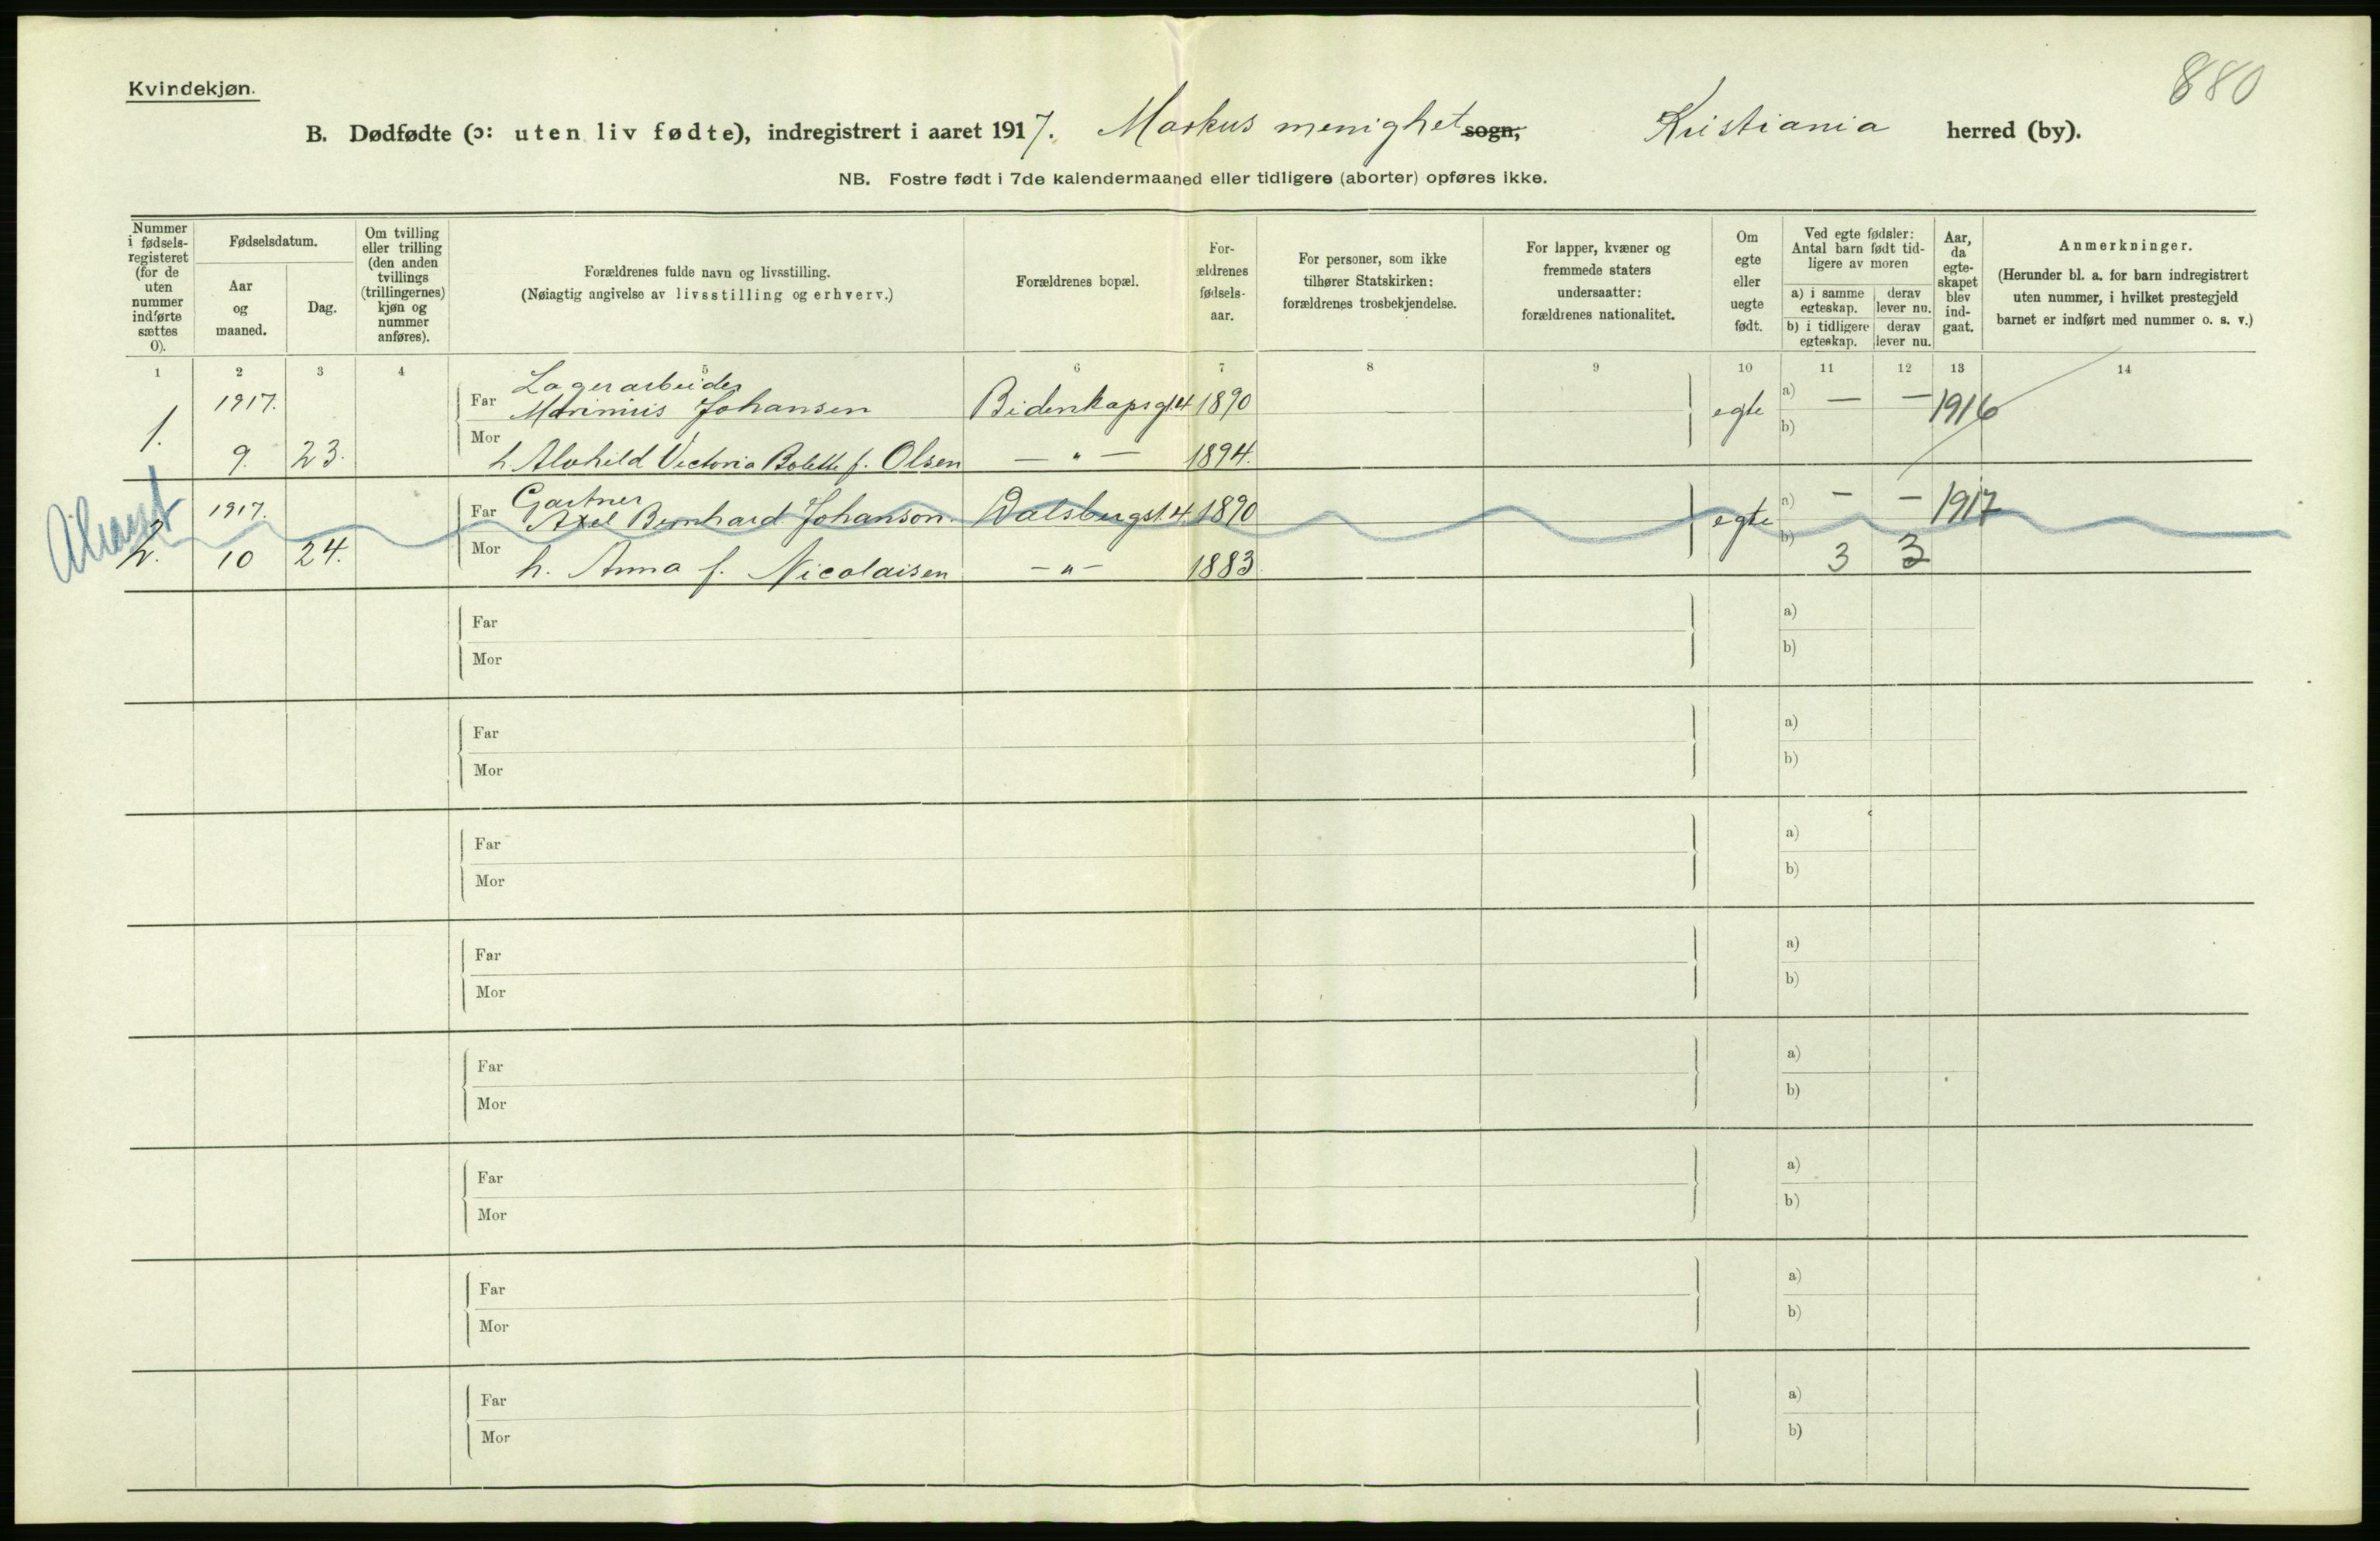 880
Kvindekjøn.
B. Dødfødte (ɔ: uten liv fødte), indregistrert i aaret 1917. Markus menighet sogn, Kristiania herred (by).
NB. Fostre født i 7de kalendermaaned eller tidligere (aborter) opføres ikke.
Nummer i fødsels-registeret (for de uten nummer indførte sættes 0).
Fødselsdatum.
Aar og maaned.
Dag.
Om tvilling eller trilling (den anden tvillings (trillingernes) kjøn og nummer anføres).
Forældrenes fulde navn og livsstilling.
(Nøiagtig angivelse av livsstilling og erhverv.)
Forældrenes bopæl.
For-ældrenes fødsels-aar.
For personer, som ikke tilhører Statskirken: forældrenes trosbekjendelse.
For lapper, kvæner og fremmede staters undersaatter: forældrenes nationalitet.
Om egte eller uegte født.
Ved egte fødsler: Antal barn født tid-ligere av moren
a) i samme egteskap. derav lever nu.
b) i tidligere egteskap. derav lever nu.
Aar, da egte-skapet blev ind-gaat.
Anmerkninger.
(Herunder bl. a. for barn indregistrert uten nummer, i hvilket prestegjeld barnet er indført med nummer o. s. v.)
1 2 3 4 5 6 7 8 9 10 11 12 13 14
Lagerarbeider
1. 1917. Far Marinius Johansen Bidenkapsgt. 4 1890 egte a) — — 1916
b)
9. 23. Mor h. Alvhild Victoria Bolette f. Olsen — " — 1894.
Gartner
2. 1917. Far Axel Bernhard Johanson. Dalsbergst. 4. 1890 egte a) — — 1917
10 24. Mor h. Anna f. Nicolaisen — " — 1883 b) 3 3
Far a)
Mor b)
Far a)
Mor b)
Far a)
Mor b)
Far a)
Mor b)
Far a)
Mor b)
Far a)
Mor b)
Far a)
Mor b)
Far a)
Mor b)